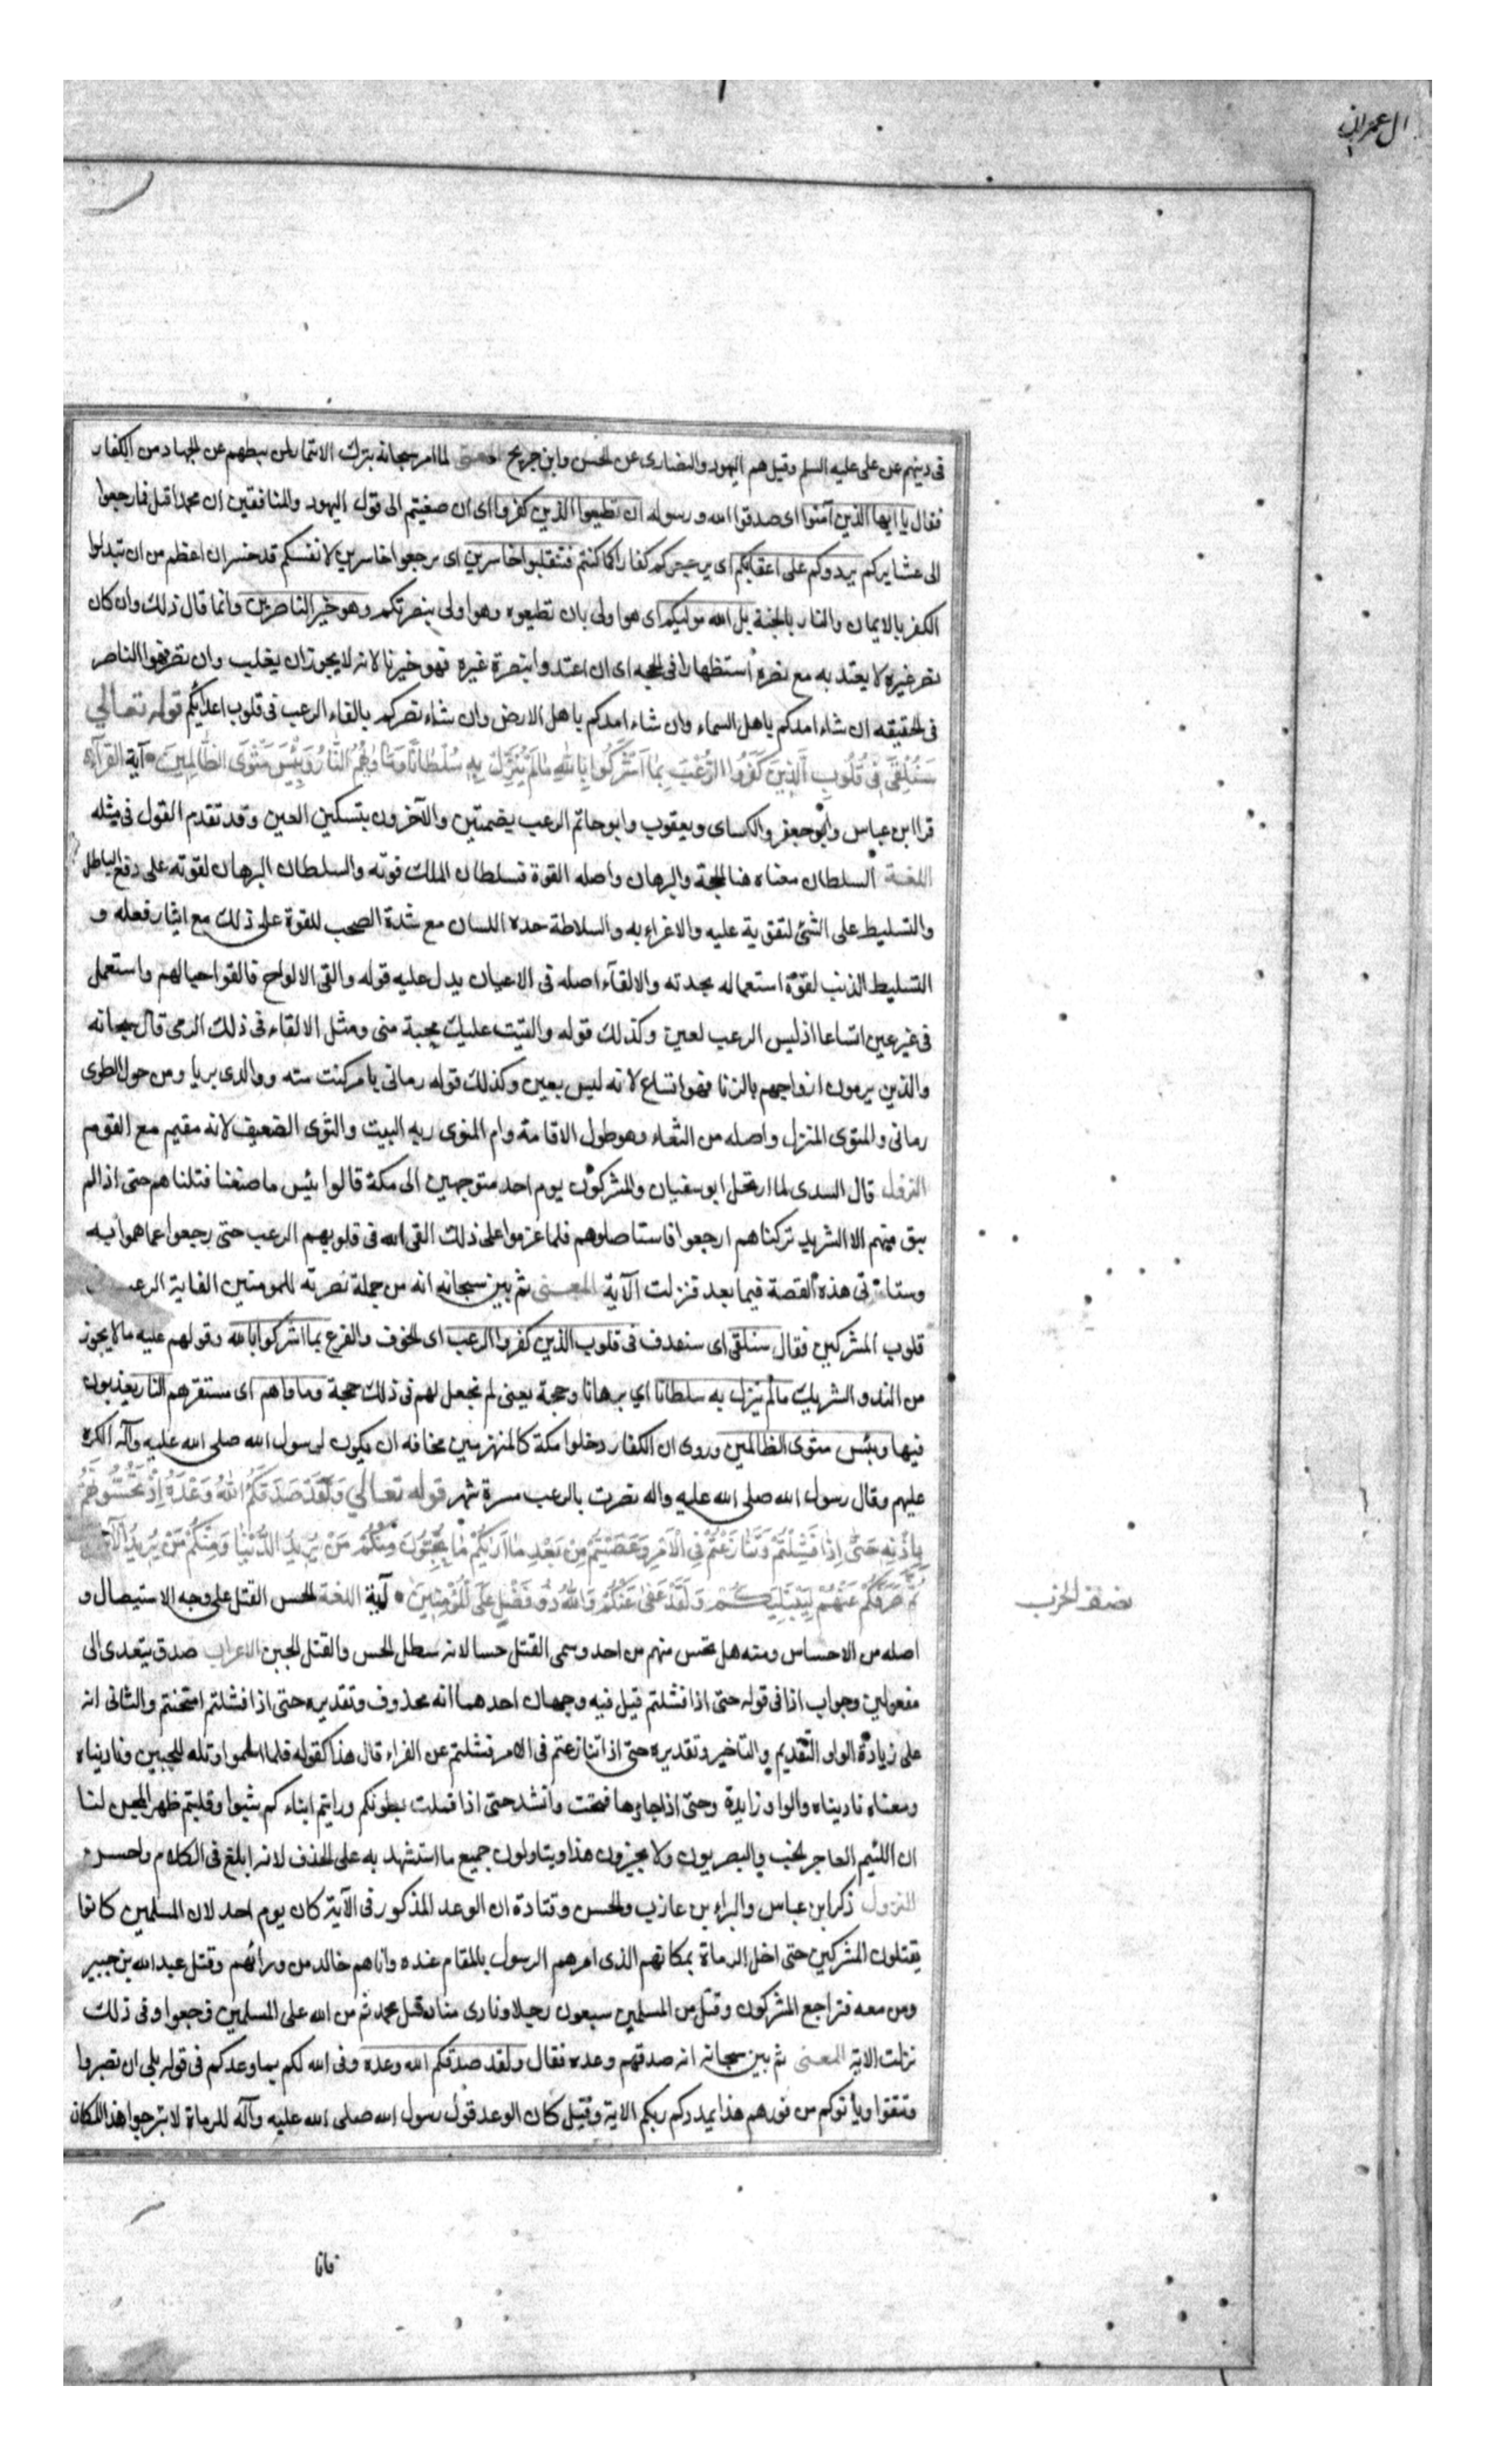 ال عمران
فى دينهم عن على عليه السلم وقيل هم اليهود والنصارى عن الحسن وابن جريح المعنى لما امر سبحانه بترك الائتمار لمن يبطهم عن الجهاد من الكفار
فقال يا ايها الذين آمنوا اى صدقوا الله ورسوله ان تطيعوا الذين كفروا اى ان صغيتم الى قول اليهود والمنافقين ان محمدا قتل فارجعوا
الى عشايركم يردوكم على اعقابكم اى يرجعوكم كفارا كما كنتم فتنقلبوا خاسرين اى يرجعوا خاسرين لانفسكم قد خسران اعظم من ان تبدلوا
الكفر بالايمان والنار بالجنة بل الله موليكم اى هو اولى بان تطيعوه وهو اولى بنصرتكم وهو خير الناصرين وانما قال ذلك وان كان
نصر غيره لا يعتد به مع نصره استظهارا فى الحجه اى ان اعتد وا بنصرة غيره فهو خيرنا لانه لا يجوز ان يغلب وان نصر فهو الناصر
فى الحقيقه ان شاء امدكم باهل السماء وان شاء امدكم باهل الارض وان شاء نصركم بالقاء الرعب فى قلوب اعدائكم قوله تعالي
سَنُلْقِى فِى قُلُوبِ الَّذِينَ كَفَرُوا الرُّعْبَ بِمَا اَشْرَكُوا بِاللهِ مَا لَمْ يُنَزِّلْ بِهِ سُلْطَانًا وَمَاْوٰهُمُ النَّارُ وَبِئْسَ مَثْوَى الظَّالِمِينَ آية القراءة
قرا ابن عباس وابو جعفر والكساى ويعقوب وابو حاتم الرعب بضمتين والآخرون بتسكين العين وقد تقدم القول فى مثله
اللغة السلطان معناه هنا الحجة والبرهان واصله القوة فسلطان الملك قوته والسلطان البرهان لقوته على دفع الباطل
والتسليط على الشئ لتقوية عليه والاغراء به والسلاطة حده اللسان مع شدة الصخب للقوة على ذلك مع ايثار فعله و
التسليط الذنب لقوة استعماله بحدته والالقآء اصله فى الاعيان يدل عليه قوله والقى الالواح فالقوا حبالهم واستعمل
فى غير عين اتساعا اذ ليس الرعب لعين وكذلك قوله والقيت عليك محبة منى ومثل الالقاء فى ذلك الرمى قال سبحانه
والذين يرمون ازواجهم بالزنا فهو اتساع لانه ليس بعين وكذلك قوله رمانى بامر كنت منه ووالدى بريا ومن حول الطوى
رمانى والمثوى المنزل واصله من الثواء وهو طول الاقامة وام المثوى ربه البيت والثوى الضعيف لانه مقيم مع القوم
النزول قال السدى لما ارتحل ابو سفيان والمشركون يوم احد متوجهين الى مكة قالوا بئس ما صنعنا قتلناهم حتى اذا لم
يبق منهم الا الشريد تركناهم ارجعوا فاستاصلوهم فلما عزموا على ذلك القى الله فى قلوبهم الرعب حتى رجعوا عما هموا به
وستاتى هذه القصة فيما بعد فنزلت الآية المعنى ثم بين سبحانه انه من جملة نصرته للمومنين القاية الرعب
قلوب المشركين فقال سنلقى اى سنقذف فى قلوب الذين كفروا الرعب اى الخوف والفزع بما اشركوا بالله وقولهم عليه ما لا يجوز
من الند والشريك ما لم ينزل به سلطانا اي برهانا وحجة يعنى لم نجعل لهم فى ذلك حجة وماواهم اى مستقرهم النار يعذبون
فيها وبئس مثوى الظالمين وروى ان الكفار دخلوا مكة كالمنهزمين مخافه ان يكون لرسول الله صلى الله عليه وآله الكره
عليهم وقال رسول الله صلى الله عليه واله نصرت بالرعب مسرة شهر قوله تعالي وَلَقَدْ صَدَقَكُمُ اللهُ وَعْدَهُ اِذْ تَحُسُّونَهُمْ
بِاِذْنِهِ حَتّٰى اِذَا فَشِلْتُمْ وَتَنَازَعْتُمْ فِى الْاَمْرِ وَعَصَيْتُمْ مِنْ بَعْدِ مَا اَرٰيكُمْ مَا تُحِبُّونَ مِنْكُمْ مَنْ يُرِيدُ الدُّنْيَا وَمِنْكُمْ مَنْ يُرِيدُ الْاٰخِرَةَ
ثُمَّ صَرَفَكُمْ عَنْهُمْ لِيَبْتَلِيَكُمْ وَلَقَدْ عَفٰى عَنْكُمْ وَاللهُ ذُو فَضْلٍ عَلَى الْمُؤْمِنِينَ آية اللغة الحس القتل على وجه الاستيصال و
نصف الحزب
اصله من الاحساس ومنه هل تحس منهم من احد وسمى القتل حسا لانه يبطل الحس والقتل الجبن الاعراب صدق يتعدى الى
مفعولين وجواب اذا فى قوله حتى اذا فشلتم قيل فيه وجهان احدهما انه محذوف وتقديره حتى اذا فشلتم امتحنتم والثانى انه
على زيادة الواو والتقديم والتاخير وتقديره حتى اذا تنازعتم فى الامر فشلتم عن الفراء قال هذا كقوله فلما اسلموا وتله للجبين وناديناه
ومعناه ناديناه والواو زايدة وحتى اذا جاؤها فتحت وانشد حتى اذا قملت بطونكم ورايتم ابناءكم شبوا وقلبتم ظهر المجن لنا
ان اللئيم العاجر الخب والبصريون ولا يجيزون هذا ويتاولون جميع ما استشهد به على الحذف لانه ابلغ فى الكلام واحسن
النزول ذكر ابن عباس والبراء بن عازب والحسن وقتادة ان الوعد المذكور فى الآية كان يوم احد لان المسلمين كانوا
يقتلون المشركين حتى اخل الرماة بمكانهم الذى امرهم الرسول بالمقام عنده واتاهم خالد من ورائهم وقتل عبد الله بن جبير
ومن معه فتراجع المشركون وقتل من المسلمين سبعون رجلا ونادى مناد قتل محمد ثم من الله على المسلمين فرجعوا وفى ذلك
نزلت الاية المعنى ثم بين سبحانه انه صدقهم وعده فقال ولقد صدقكم الله وعده وفى الله لكم بما وعدكم فى قوله بلى ان تصبروا
وتتقوا ويأتوكم من فورهم هذا يمددكم ربكم الاية وقيل كان الوعد قول رسول الله صلى الله عليه وآله للرماة لا تبرحوا هذا المكان
فانا